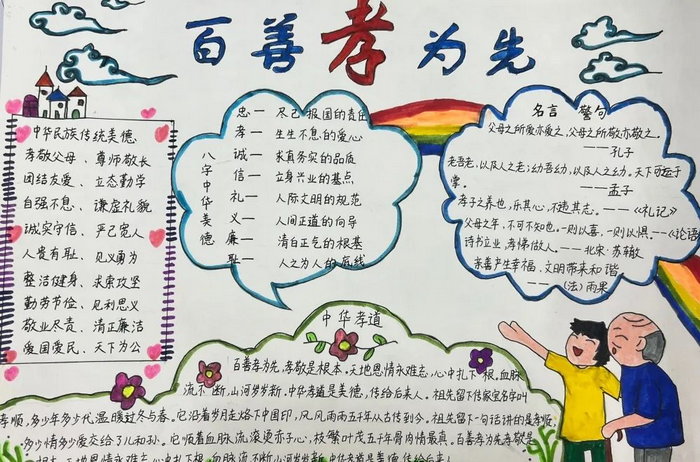 百善孝为先
中华民族传统美德
孝敬父母、尊师敬长
团结友爱、立志勤学
自强不息、谦虚礼貌
诚实守信、严己宽人
人贵有耻、见义勇为
整洁健身、求索攻坚
勤劳节俭、见利思义
敬业尽责、清正廉洁
爱国爱民、天下为公
八字中华美德
忠一 尽己报国的责任
孝一 生生不息的爱心
诚一 求真务实的品质
信一 立身兴业的基点
礼一 人际文明的规范
义一 人间正道的向导
廉一 清白正气的根基
耻一 人之为人的底线
名言 警句
父母之所爱亦爱之,父母之所敬亦敬之。
——孔子
老吾老,以及人之老;幼吾幼,以及人之幼。天下可运于
掌。 ——孟子
孝子之养也,乐其心,不违其志。——《礼记》
父母之年,不可不知也。一则以喜,一则以惧。——《论语》
诗书立业,孝悌做人。——北宋·苏辙
亲善产生幸福,文明带来和谐。
——(法)雨果
中华孝道
百善孝为先,孝敬是根本。天地恩情永难忘,心中扎下根。血脉
流不断,山河岁岁新。中华孝道是美德,传给后来人。祖先留下传家宝名字叫
孝顺,多少年多少代温暖过冬与春。它沿着岁月走烙下中国印,风风雨雨五千年从古传到今。祖先留下一句话讲的是孝顺,
多少情多少爱交给了儿和孙。它顺着血脉流滚烫赤子心,枝繁叶茂五千年骨肉情最真。百善孝为先孝敬是
根本,天地恩情永难忘心中扎下根,血脉流不断山河岁岁新,中华孝道是美德,传给后来人。